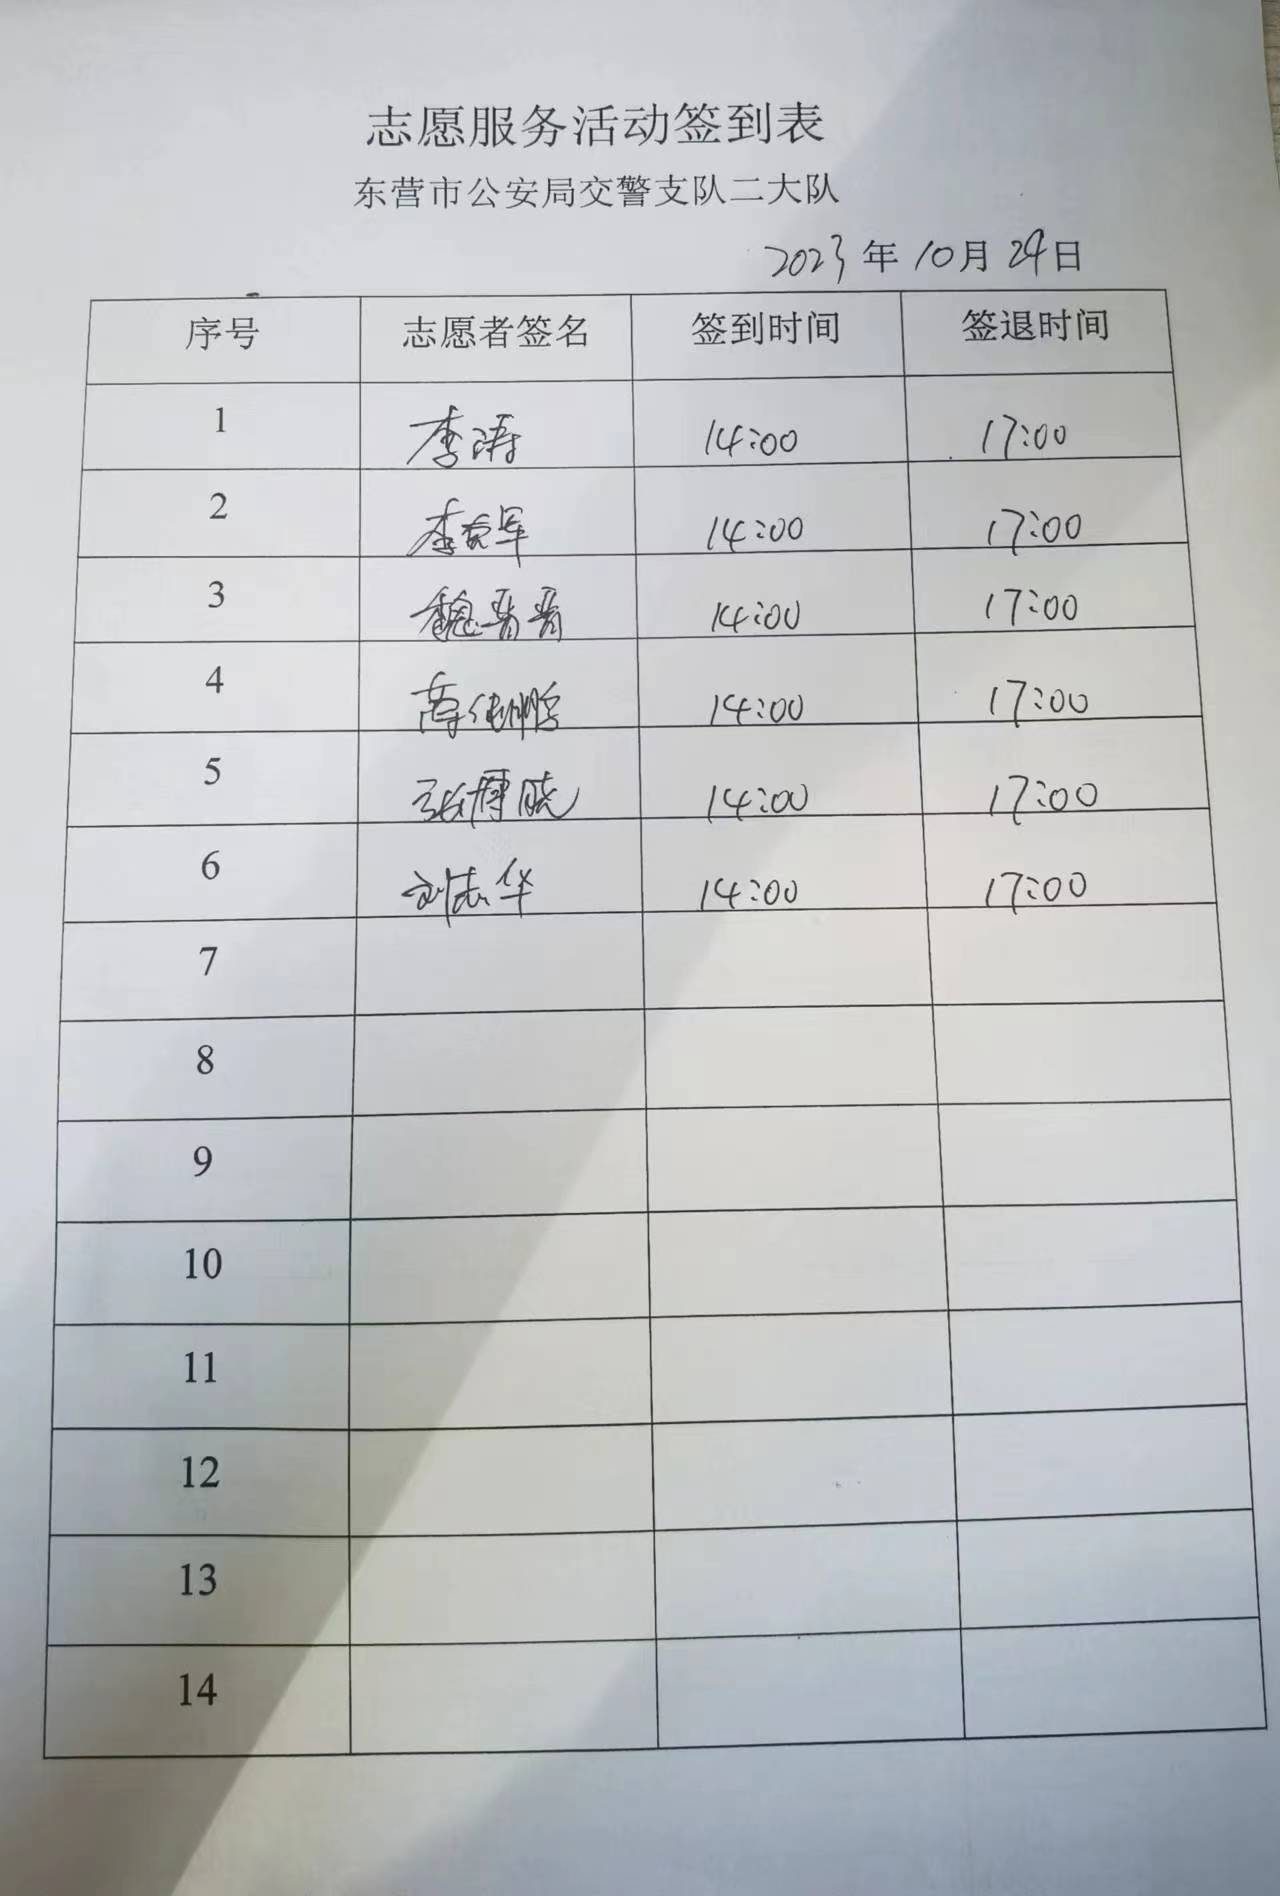 志愿服务活动签到表
东营市公安局交警支队二大队
2023年10月29日
序号 志愿者签名 签到时间 签退时间
1 李涛 14:00 17:00
2 14:00 17:00
3 魏晋晋 14:00 17:00
4 14:00 17:00
5 张博晓 14:00 17:00
6 刘志华 14:00 17:00
7
8
9
10
11
12
13
14